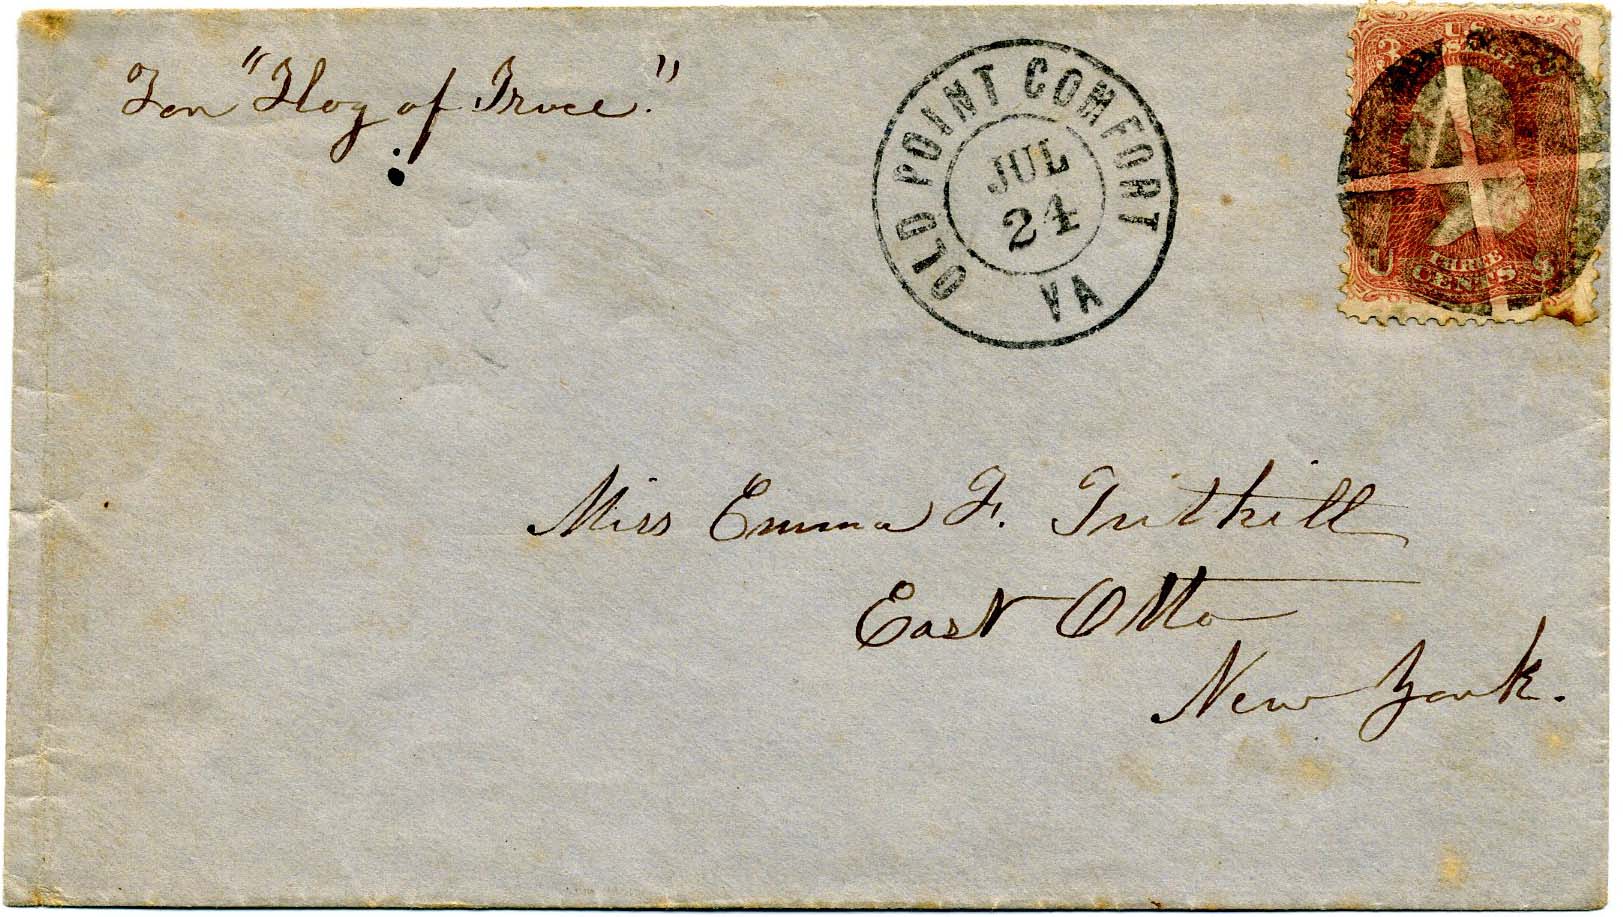 For "Flag of Truce."
OLD POINT COMFORT
VA
JUL
24
3
U.S.
U THREE S
CENTS
Miss Emma F. Tuthill
East Otto
New York.